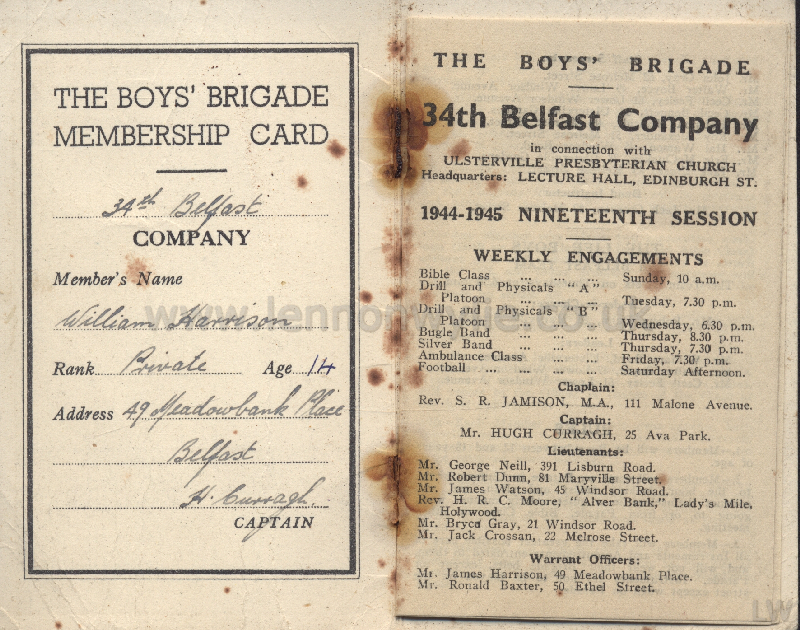 THE BOYS' BRIGADE
MEMBERSHIP CARD
34th Belfast
COMPANY
Member's Name
William Harrison
Rank Private Age 14
Address 49 Meadowbank Place
Belfast
H. Curragh.
CAPTAIN
THE BOYS' BRIGADE
34th Belfast Company
in connection with
ULSTERVILLE PRESBYTERIAN CHURCH
Headquarters: LECTURE HALL, EDINBURGH ST.
1944-1945 NINETEENTH SESSION
WEEKLY ENGAGEMENTS
Bible Class ... ... ... Sunday, 10 a.m.
Drill and Physicals "A"
Platoon ... ... ... Tuesday, 7.30 p.m.
Drill and Physicals "B"
Platoon ... ... ... Wednesday, 6.30 p.m.
Bugle Band ... ... ... Thursday, 8.30 p.m.
Silver Band ... ... ... Thursday, 7.30 p.m.
Ambulance Class ... ... Friday, 7.30 p.m.
Football ... ... ... ... Saturday Afternoon.
Chaplain:
Rev. S. R. JAMISON, M.A., 111 Malone Avenue.
Captain:
Mr. HUGH CURRAGH, 25 Ava Park.
Lieutenants:
Mr. George Neill, 391 Lisburn Road.
Mr. Robert Dunn, 81 Maryville Street.
Mr. James Watson, 45 Windsor Road.
Rev. H. R. C. Moore, "Alver Bank," Lady's Mile,
Holywood.
Mr. Bryce Gray, 21 Windsor Road.
Mr. Jack Crossan, 22 Melrose Street.
Warrant Officers:
Mr. James Harrison, 49 Meadowbank Place.
Mr. Ronald Baxter, 50 Ethel Street.
LW